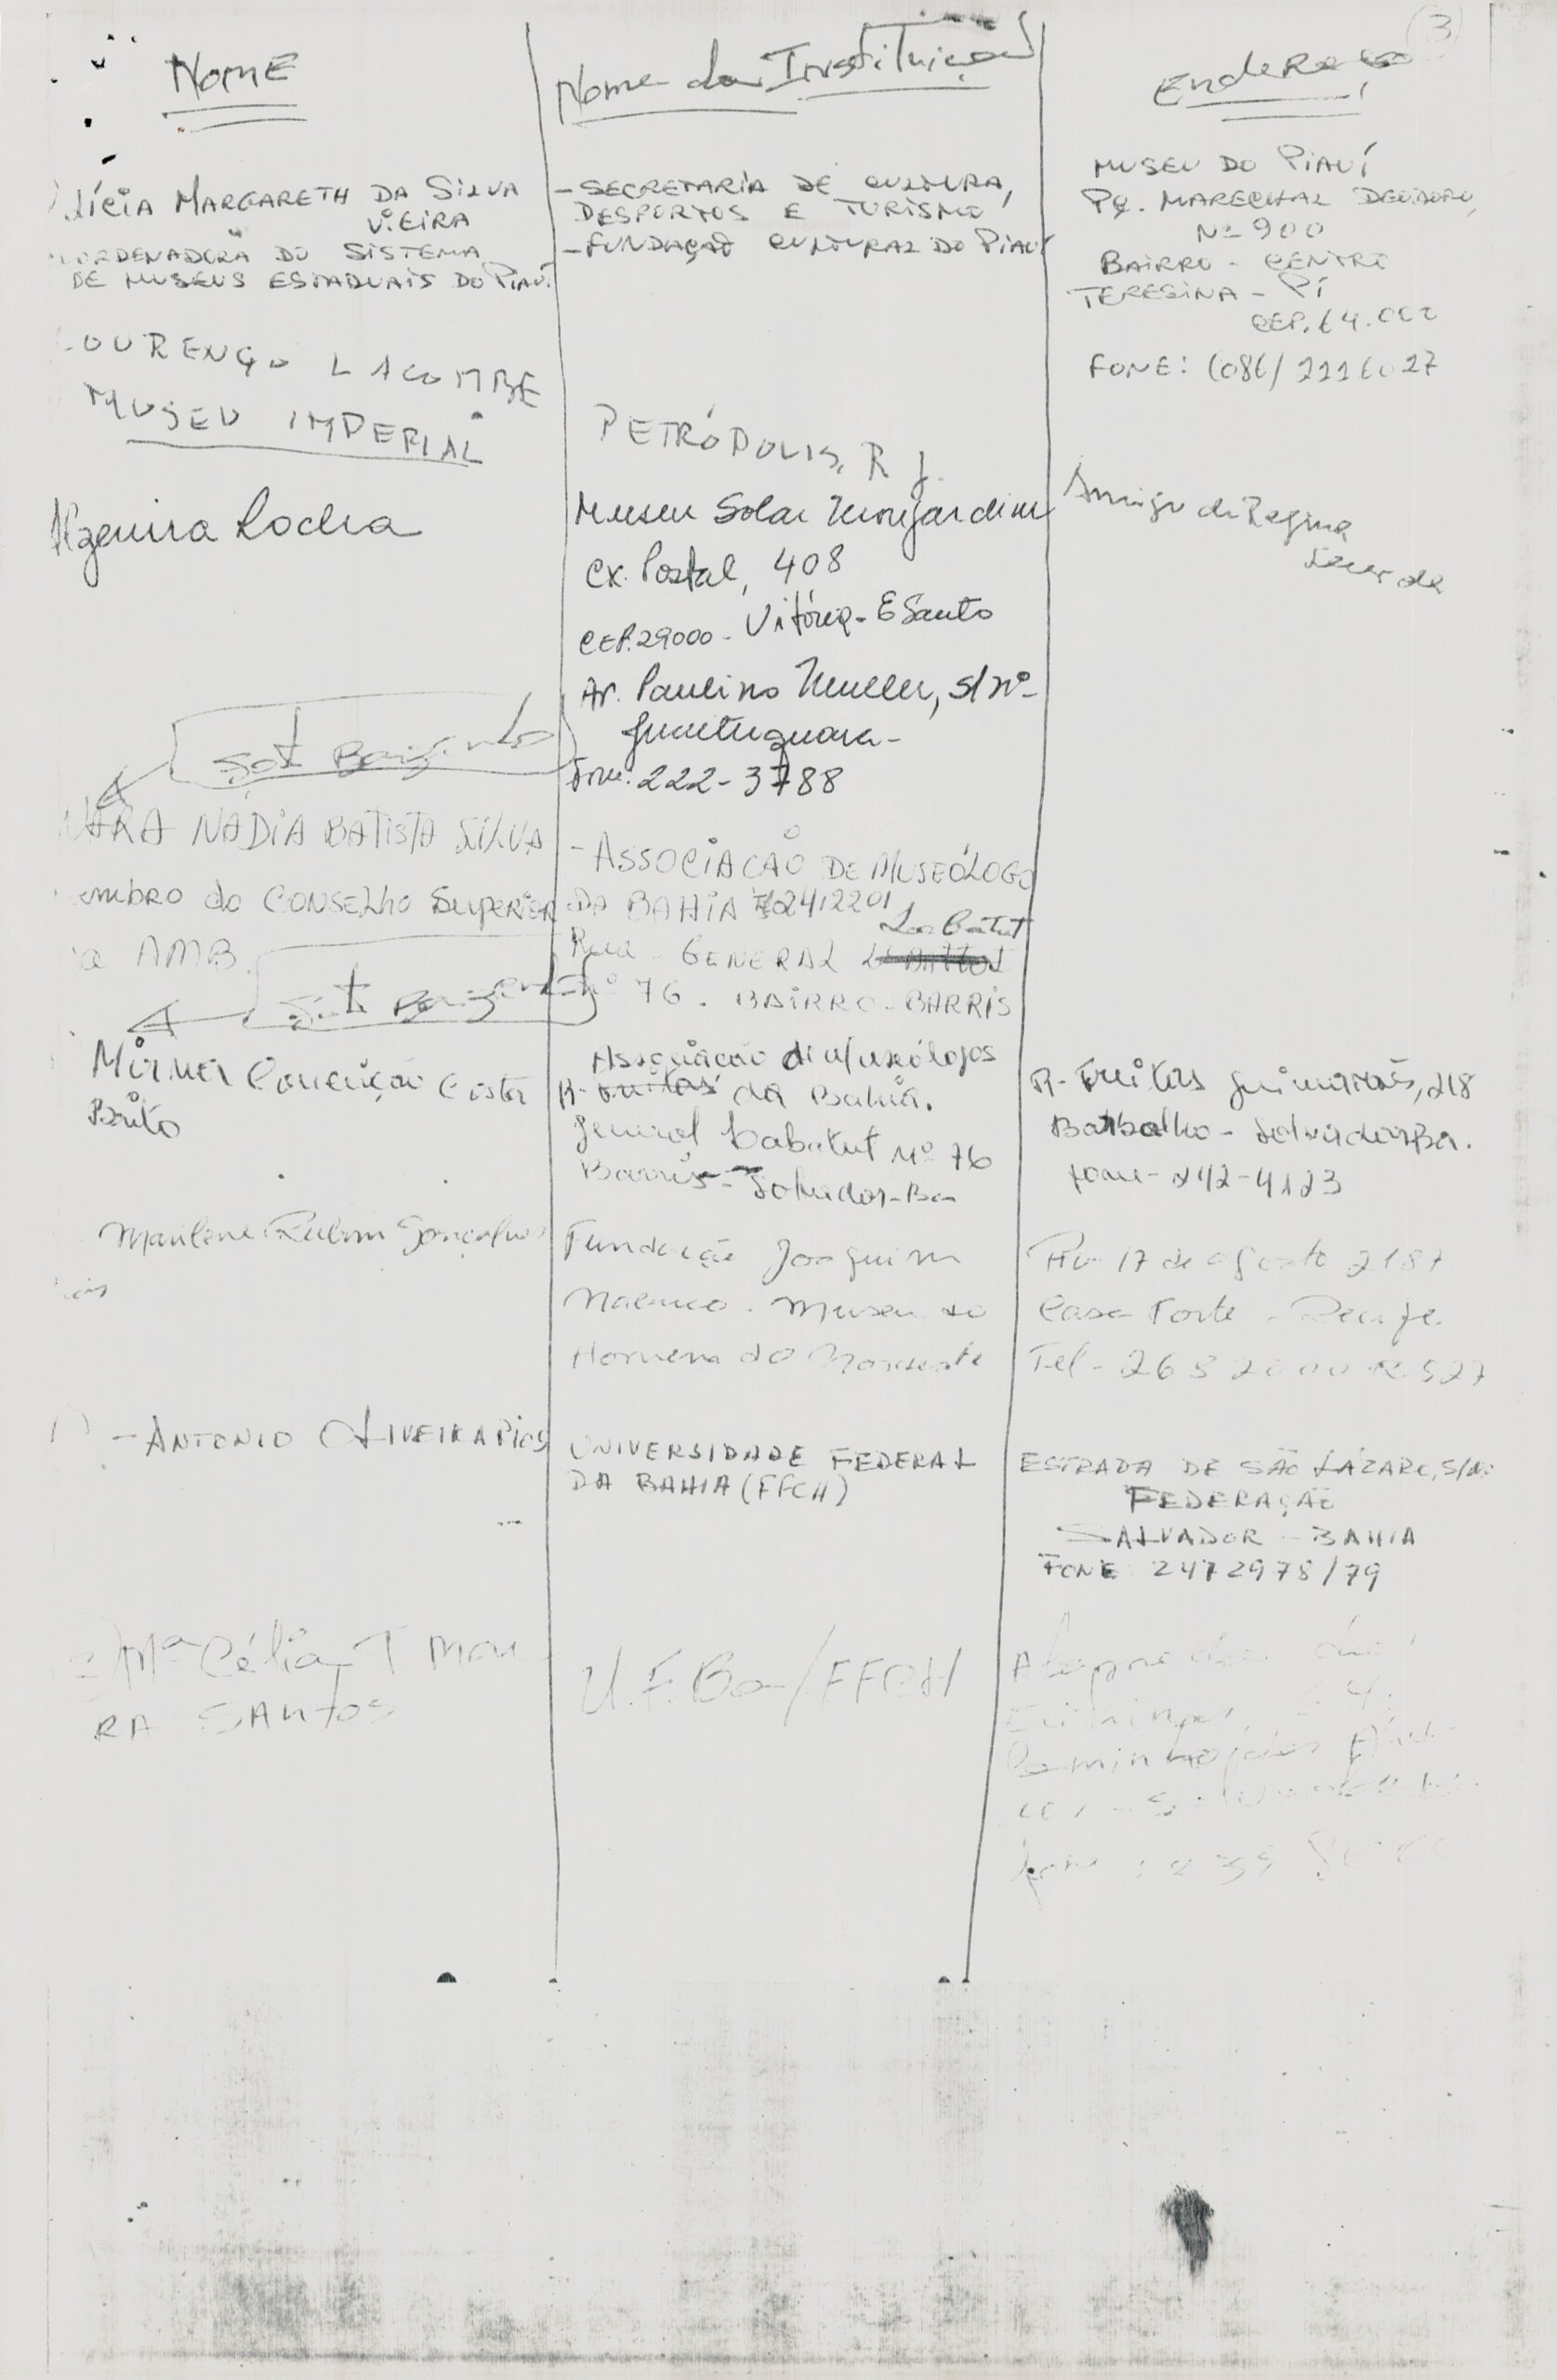 3
NOME
Nome da Instituição
Endereço
lícia MARGARETH DA SILVA
VIEIRA
ORDENADORA DO SISTEMA
DE MUSEUS ESTADUAIS DO PIAUÍ
- SECRETARIA DE CULTURA,
DESPORTOS E TURISMO
- FUNDAÇÃO CULTURAL DO PIAUÍ
MUSEU DO PIAUÍ
PÇ. MARECHAL DEODORO,
Nº 900
BAIRRO - CENTRO
TERESINA - PI
CEP. 64.000
FONE: (086)
LOURENÇO LACOMBE
MUSEU IMPERIAL
PETRÓPOLIS, RJ.
Rocha
Museu Solar Monjardim
Cx. Postal, 408
CEP. 29000 - Vitória - E Santo
Av. Paulino Muller, s/nº -
Jucutuquara -
Fone: 222-3788
Amigo de Regina
NÁDIA BATISTA SILVA
embro do CONSELHO Superior
AMB.
- ASSOCIAÇÃO DE MUSEÓLOGO
DA BAHIA 2412201
Rua GENERAL Labatut
nº 76. BAIRRO - BARRIS
Mirna Conceição Costa
Brito
Associação de Museólogos
R. da Bahia.
General Labatut Nº 76
Barris - Salvador - Ba
R - Freitas Guimarães, 218
Barbalho - Salvador-Ba.
fone - 242-4123
Marilene Rubim Gonçalves
Fundação Joaquim
Nabuco. Museu do
Homem do Nordeste
Av - 17 de agosto 2187
Casa Forte - Recife.
Tel - 268 2000 R. 527
- ANTONIO OLIVEIRA RIOS
UNIVERSIDADE FEDERAL
DA BAHIA (FFCH)
ESTRADA DE SÃO LÁZARO, S/Nº
FEDERAÇÃO
SALVADOR - BAHIA
FONE 2472978/79
Mª Célia T MOU
RA SANTOS
U.F.Ba-/FFCH